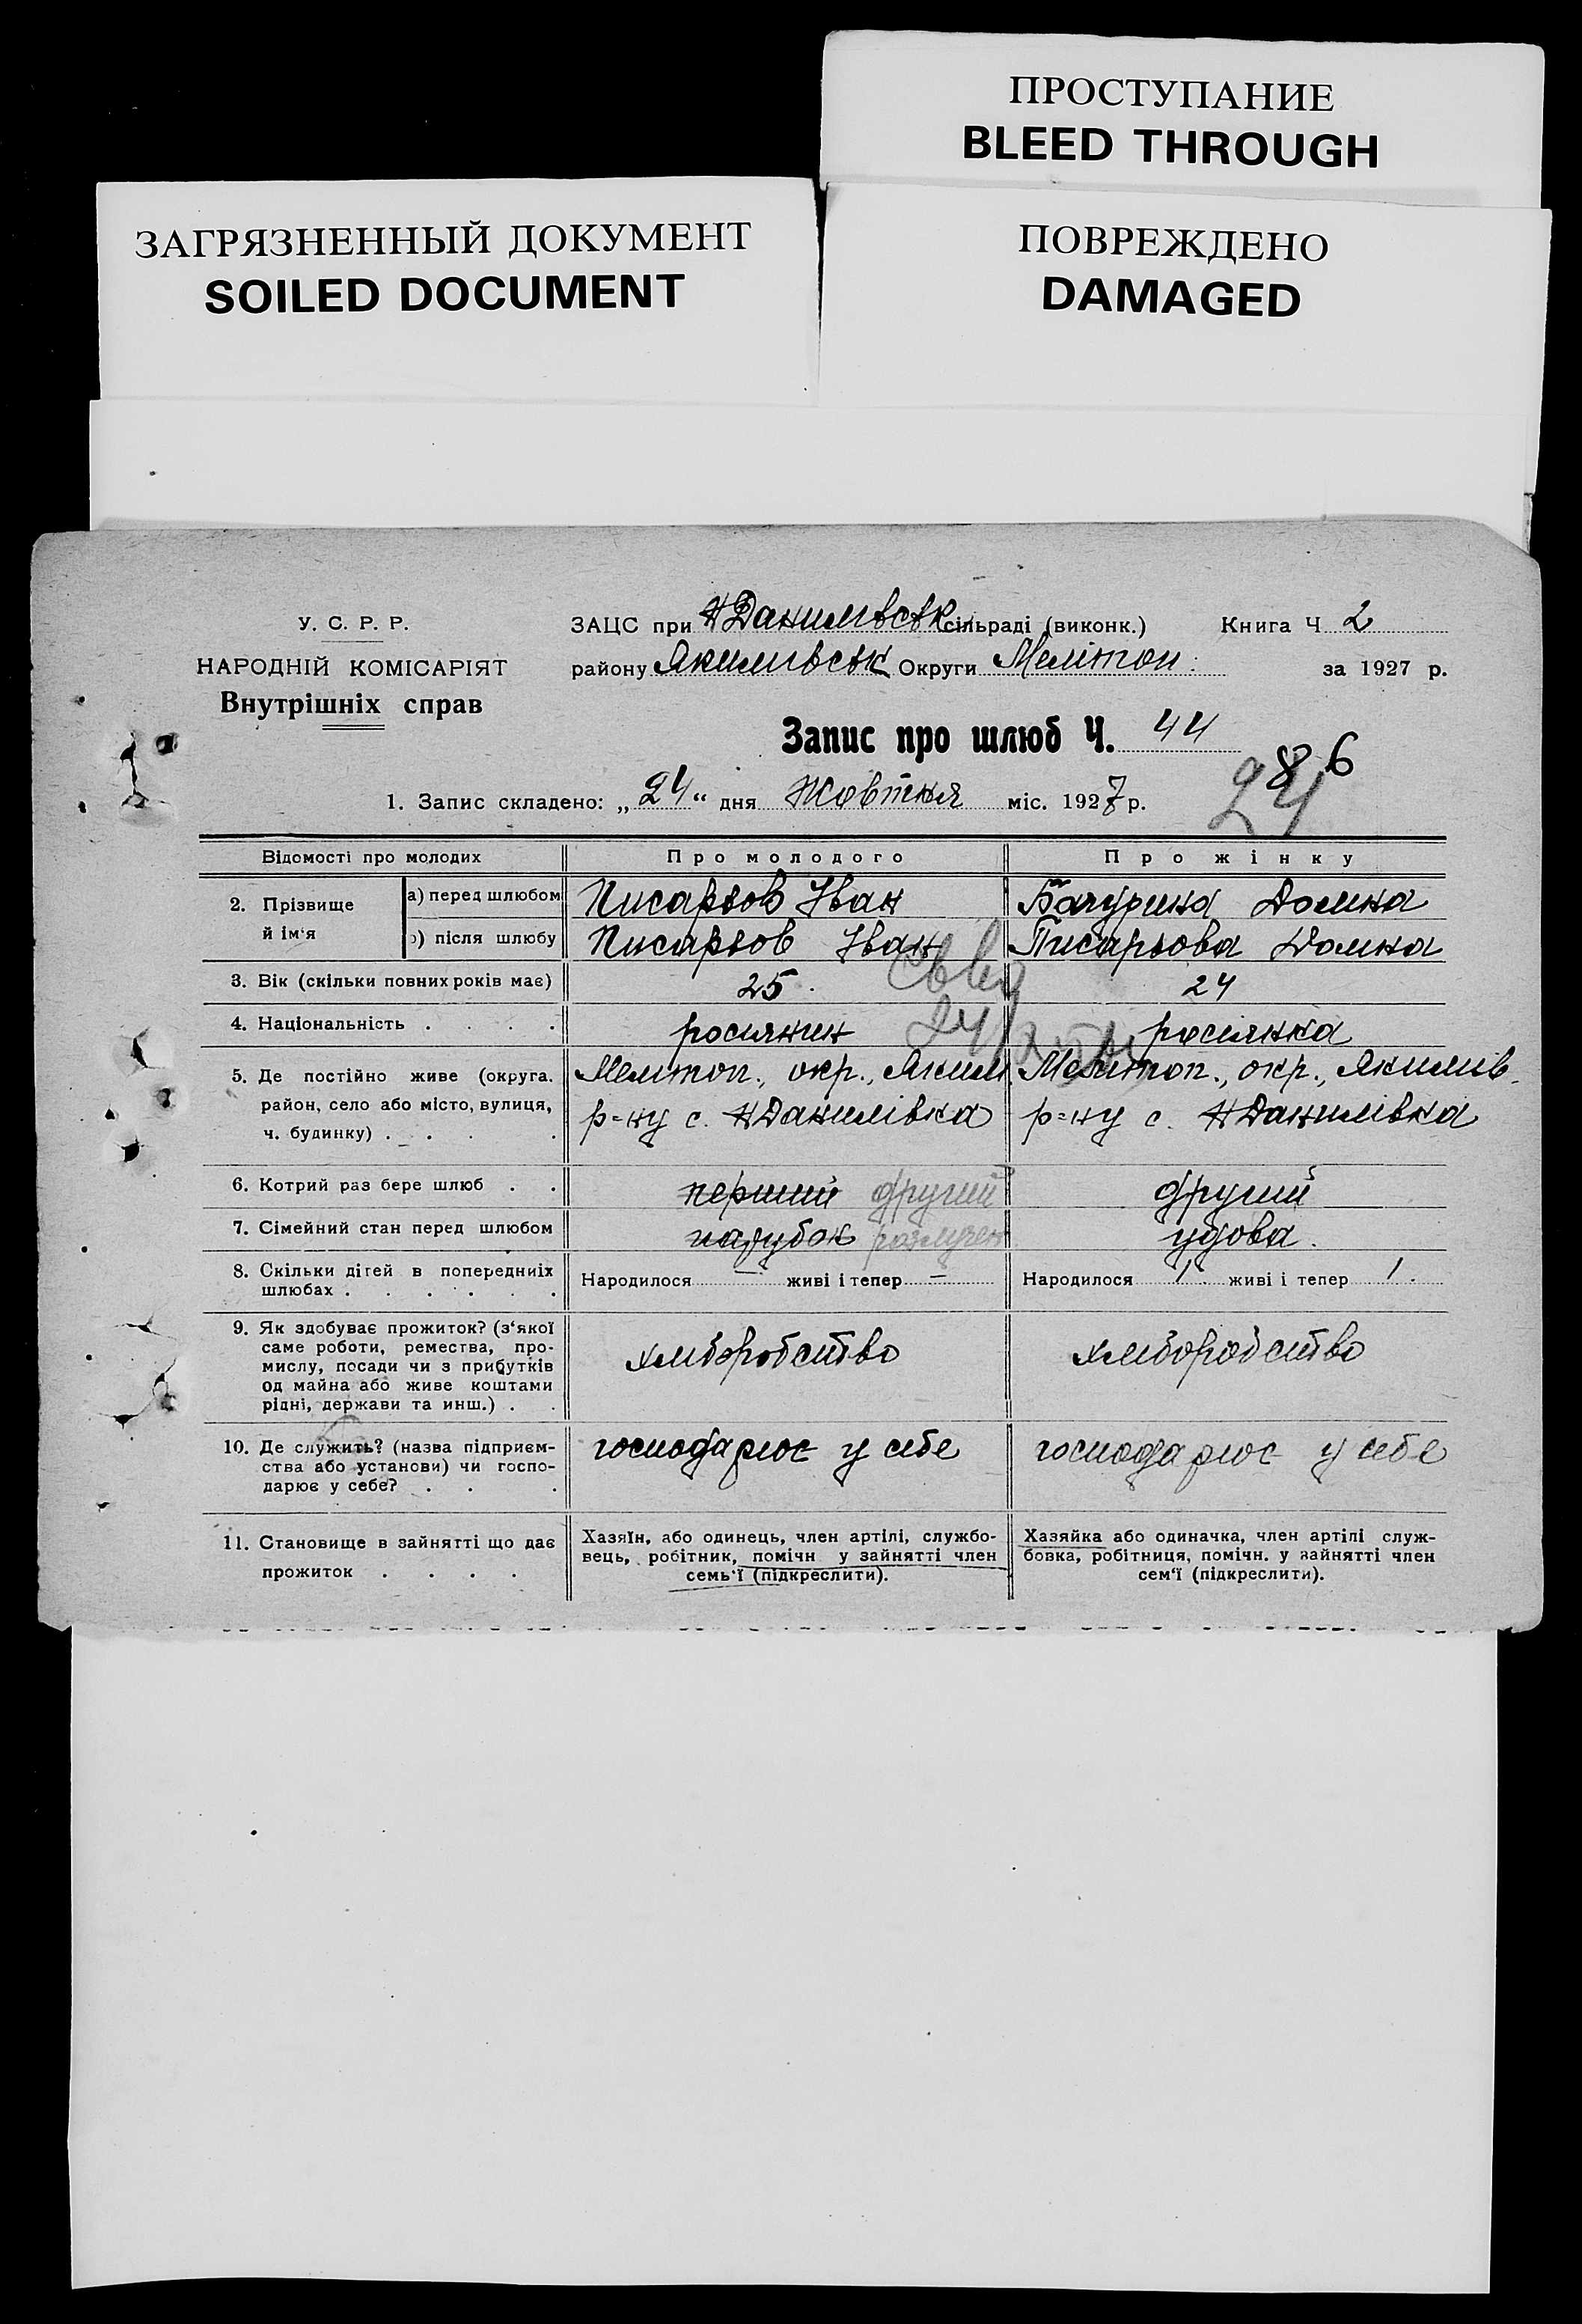 ПРОСТУПАНИЕ
BLEED THROUGH
ЗАГРЯЗНЕННЫЙ ДОКУМЕНТ
SOILED DOCUMENT
ПОВРЕЖДЕНО
DAMAGED
У. С. Р. Р.
НАРОДНІЙ КОМІСАРІЯТ
Внутрішніх справ
ЗАЦС при Н Данилівськ сільраді (виконк.) Книга Ч 2
району Якимівськ Округи Мелітоп. за 1927 р.
Запис про шлюб Ч. 44
86
24
1. Запис складено: „24“ дня Жовтня міс. 1927 р.
Відомості про молодих Про молодого Про жінку
2. Прізвище й ім‘я а) перед шлюбом Писарьов Іван Бачурина Домна
б) після шлюбу Писарьов Іван Писарьова Домна
3. Вік (скільки повних років має) 25. 24
4. Національність . . . . росіянин росіянка
24/
5. Де постійно живе (округа. Меліт­оп., окр., Яким Мелітоп., окр., Якимів.
район, село або місто, вулиця, р=ну с. Н Данилівка р=ну с. Н Данилівка
ч. будинку) . . . .
6. Котрий раз бере шлюб . . перший другий другий
7. Сімейний стан перед шлюбом парубок разлучен удова.
8. Скільки дітей в попередніх Народилося — живі і тепер — Народилося 1. живі і тепер 1.
шлюбах . . . . . .
9. Як здобуває прожиток? (з‘якої
саме роботи, ремества, про-
мислу, посади чи з прибутків хліборобство хліборобство
од майна або живе коштами
рідні, держави та инш.) . .
10. Де служить? (назва підприєм- господарює у себе господарює у себе
ства або установи) чи госпо-
дарює у себе? . . .
11. Становище в зайнятті що дає Хазяїн, або одинець, член артілі, службо- Хазяйка або одиначка, член артілі служ-
прожиток . . . . вець, робітник, помічн у зайнятті член бовка, робітниця, помічн. у зайнятті член
семь‘ї (підкреслити). сем‘ї (підкреслити).